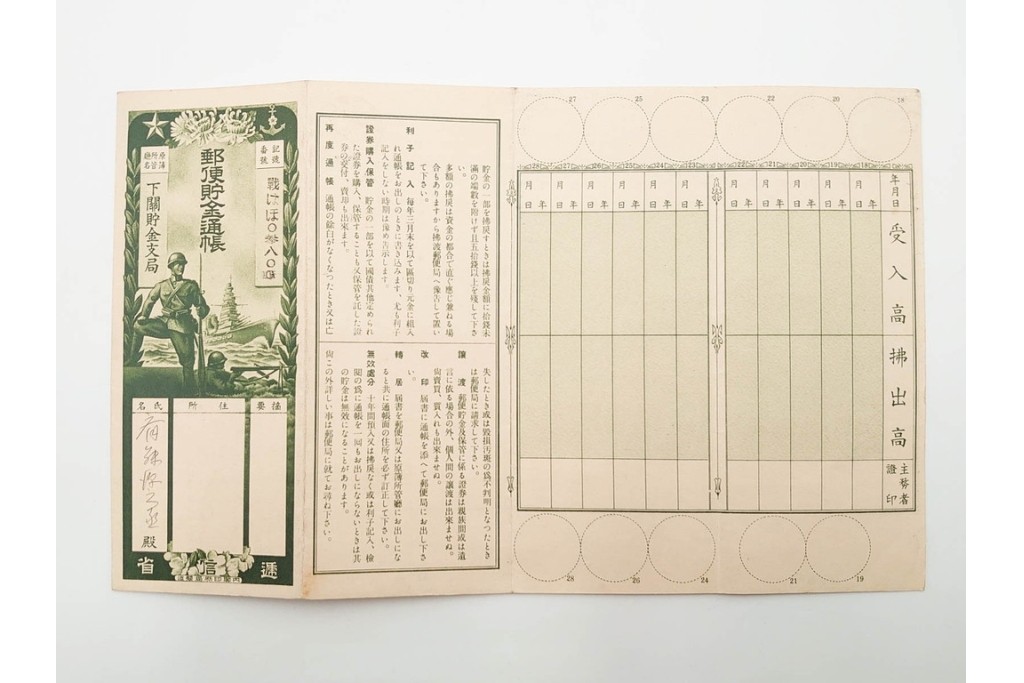 郵便貯金通帳
記號番號
戰はほ〇参八〇
原簿所管廳名
下關貯金支局
摘要
住所
氏名
殿
遞信省
內閣印刷局製造
貯金の一部を拂戾すときは拂戾金額に拾錢未
滿の端數を附けず且五拾錢以上を殘して下さ
い。
多額の拂戾は資金の都合で直ぐ應じ兼ねる場
合もありますから拂渡郵便局へ豫告して置い
て下さい。
利子記入 每年三月末を以て區切り元金に組入
れ通帳をお出しのときに書き込みます、尤も利子
記入をしない時期は豫め告示します。
證券購入保管 貯金の一部を以て國債其他定められ
た證券を購入、保管することも又保管を託した證
券の交付、賣却も出來ます。
再度通帳 通帳の餘白がなくなつたとき又は亡
失したとき或は毀損汚斑の爲不判明となつたとき
は郵便局に請求して下さい。
讓渡 郵便貯金及保管に係る證券は親族間或は遺
言に依る場合の外、個人間の讓渡は出來ませぬ。
尙賣買、質入れも出來ませぬ。
改印 屆書に通帳を添へて郵便局にお出し下さ
い。
轉居 屆書を郵便局又は原簿所管廳にお出しにな
ると共に通帳面の住所を必ず訂正して下さい。
無效處分 十年間預入又は拂戾なく或は利子記入、檢
閱の爲に通帳を一回もお出しにならないときは其
の貯金は無效になることがあります。
尙この外詳しい事は郵便局に就てお尋ね下さい。
27 25 23 22 20 18
年月日
受入高
拂出高
主務者證印
年月日
年月日
年月日
年月日
年月日
年月日
年月日
年月日
年月日
年月日
28 26 24 21 19